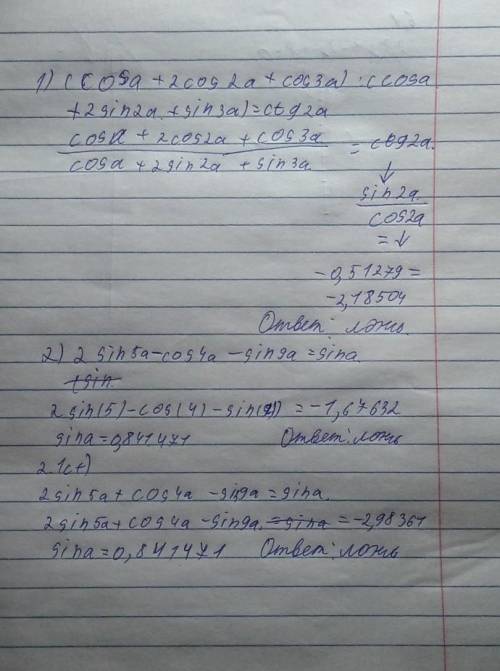 1) (cosa + 2cos2a + cos3a) : (cosa
+2sin2a + sin3a) = ctg2a
cosa + 2cos2a + cos3a
cosa + 2sin2a + sin3a
= ctg2a
↓
sin2a
cos2a
= ↓
-0,51279 =
-2,18504
Ответ: ложь.
2) 2 sin5a-cos4a -sin9a = sina.
2 sin(5)-cos(4)-sin(9) = -1,67632
sina = 0,841471 Ответ: ложь
2sin5a + cos4a -sin9a = sina.
2sin5a + cos4a -sin9a = sina = -2,98361
sina = 0,841471 Ответ: ложь